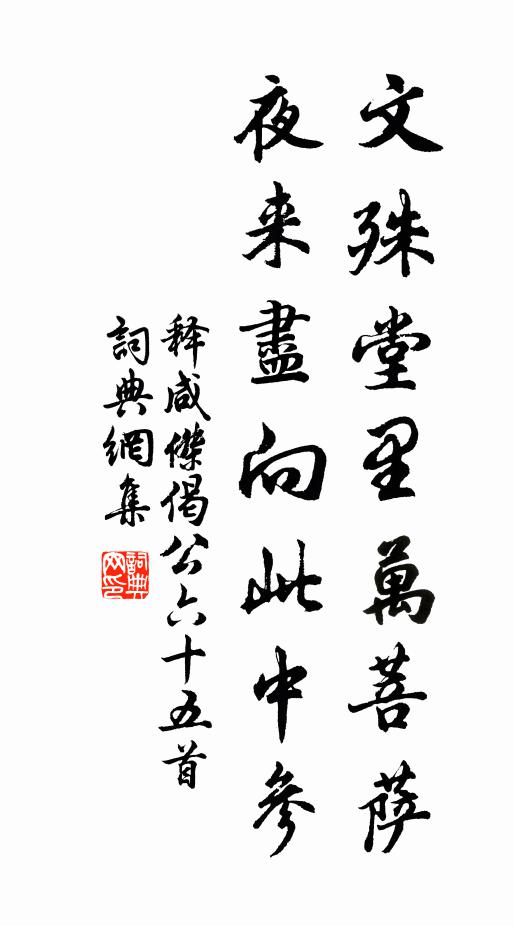 文殊堂里萬菩薩
夜来盡向此中參
释咸傑偈公六十五首
詞典網集
詞典网印